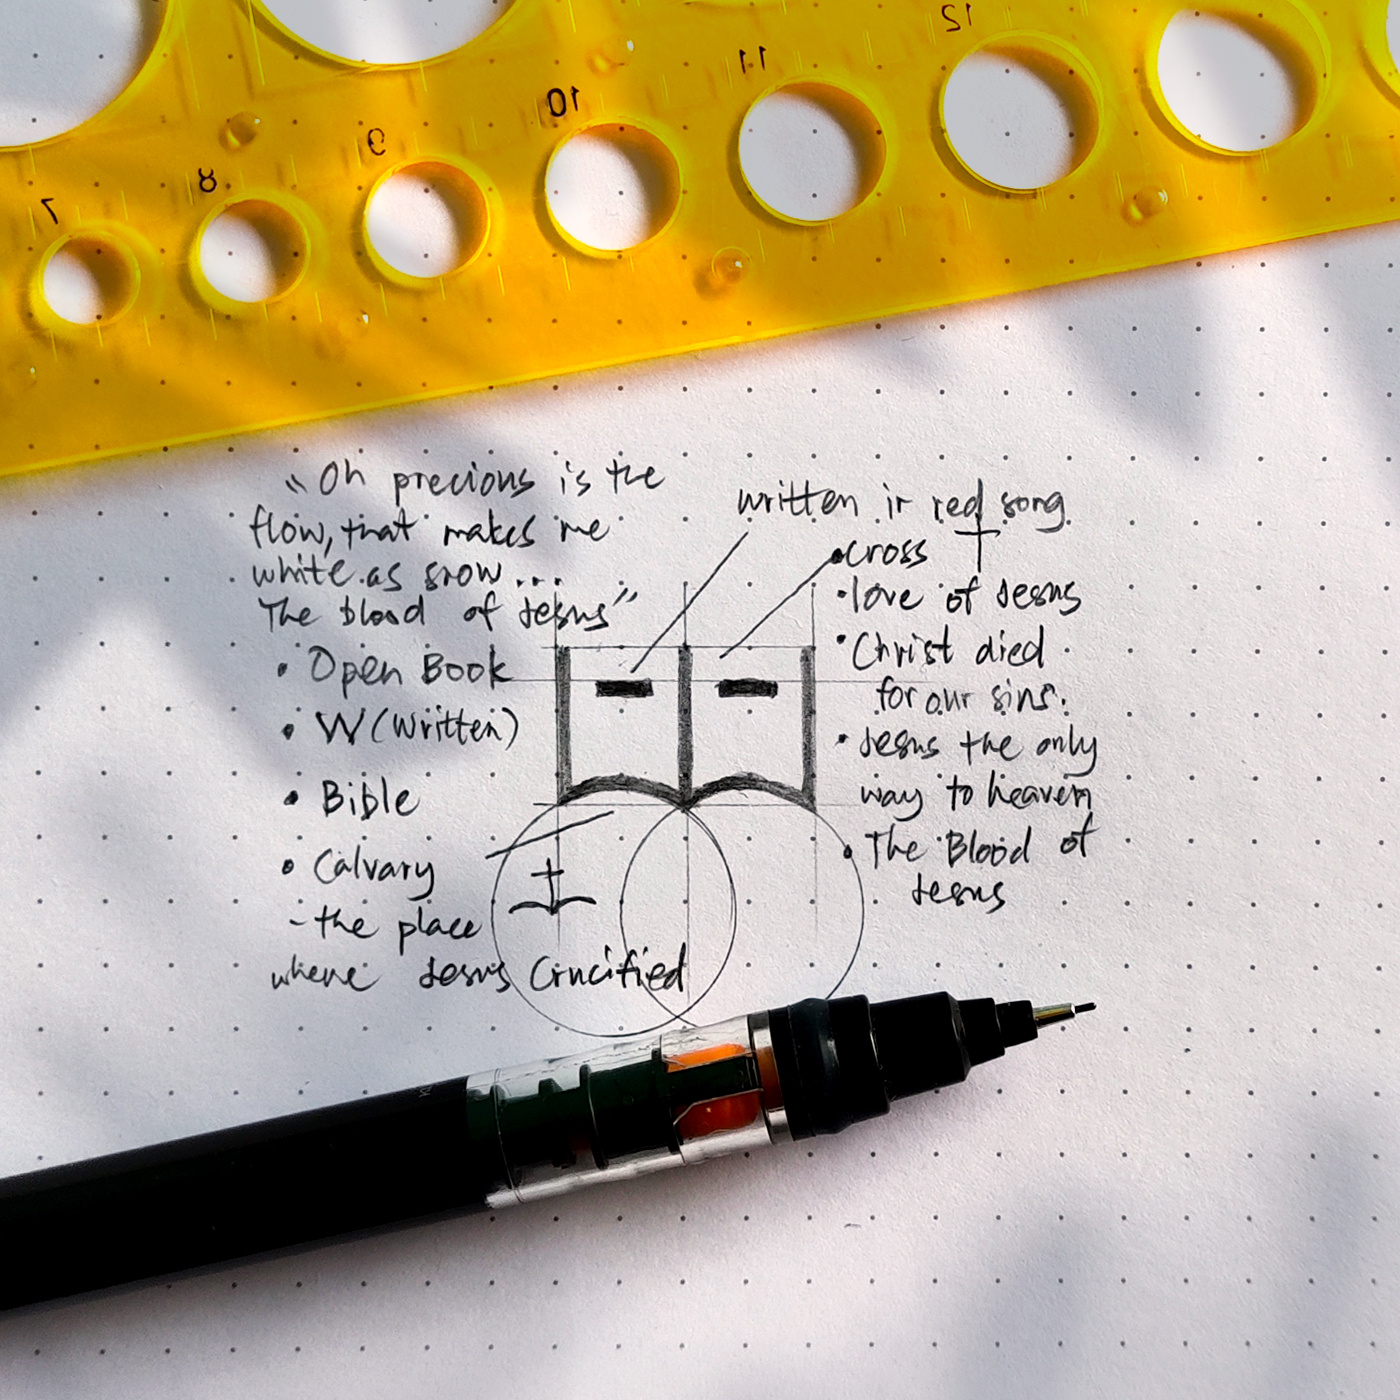 7
8
9
10
11
12
"Oh precious is the
flow, that makes me
white as snow...
The blood of Jesus"
• Open Book
• W (Written)
• Bible
• Calvary
- the place
where Jesus Crucified
written in red song
• cross
• love of Jesus
• Christ died
for our sins.
• Jesus the only
way to heaven
• The Blood of
Jesus